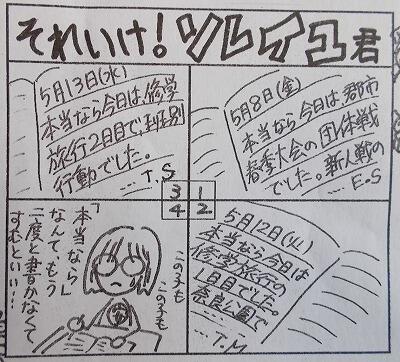 それいけ!ソレイユ君
5月8日(金)
本当なら今日は、郡市
春季大会の団体戦
でした。新人戦の
… E.S
5月12日(火)
本当なら今日は
修学旅行の
1日目でした。
奈良公園で
… T.M
5月13日(水)
本当なら今日は、修学
旅行2日目で、班別
行動でした。
… T.S
3 1
4 2
この子も
この子も
「本当なら」
なんてもう
二度と書かなくて
すむといい…!